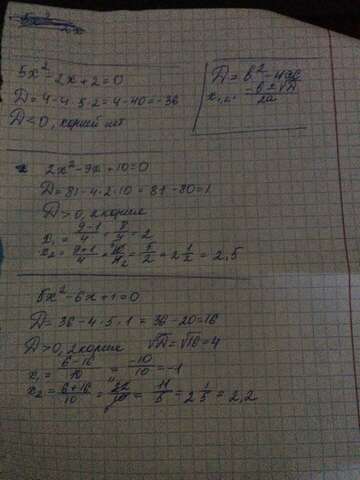 5x² - 2x + 2 = 0
D = 4 - 4·5·2 = 4 - 40 = -36
D < 0, корней нет
D = b² - 4ac
x₁,₂ = (-b ± √D)/2a
2x² - 9x + 10 = 0
D = 81 - 4·2·10 = 81 - 80 = 1
D > 0, 2 корня
x₁ = (9-1)/4 = 8/4 = 2
x₂ = (9+1)/4 = 10/4 = 5/2 = 2 1/2 = 2,5
5x² - 6x + 1 = 0
D = 36 - 4·5·1 = 36 - 20 = 16
D > 0, 2 корня √D = √16 = 4
x₁ = (6-16)/10 = -10/10 = -1
x₂ = (6+16)/10 = 22/10 = 11/5 = 2 1/5 = 2,2